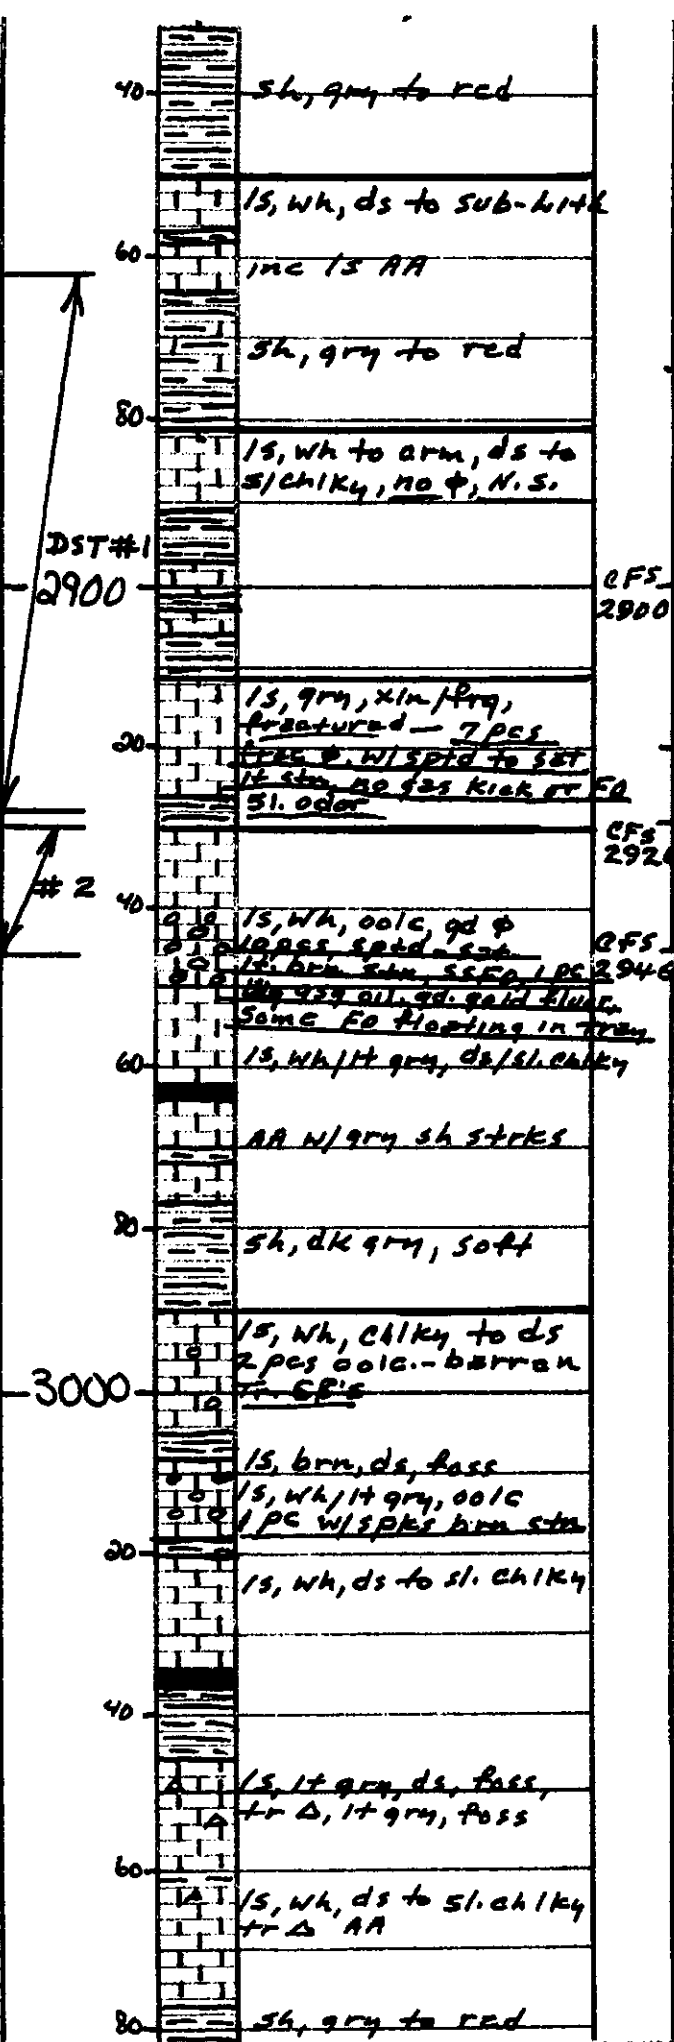 40 sh, gry to red
ls, wh, ds to sub-lith
60
inc ls AA
sh, gry to red
80
ls, wh to crm, ds to
sl chlky, no φ, N.S.
DST #1
2900
CFS
2900
ls, gry, xln/frg,
fractured — 7 pcs
20
frac φ. w/ sptd to sat
lt stn, no gas kick or FO
sl. odor
CFS
2926
#2
40
ls, wh, oolc, gd φ
10 pcs, sptd - sat.
CFS
2946
lt. brn stn, SSFO, 1 pc
gsy oil, gd. gold fluor,
Some FO floating in tray
60
ls, wh/lt gry, ds/sl. chlky
AA w/ gry sh strks
80
sh, dk gry, soft
ls, wh, chlky to ds
2 pcs oolc. - barren
3000
Tr.
ls, brn, ds, foss
ls, wh/lt gry, oolc
1 pc w/ spks brn stn
20
ls, wh, ds to sl. chlky
40
ls, lt gry, ds, foss,
tr Δ, lt gry, foss
60
ls, wh, ds to sl. chlky
tr Δ AA
80 sh, gry to red